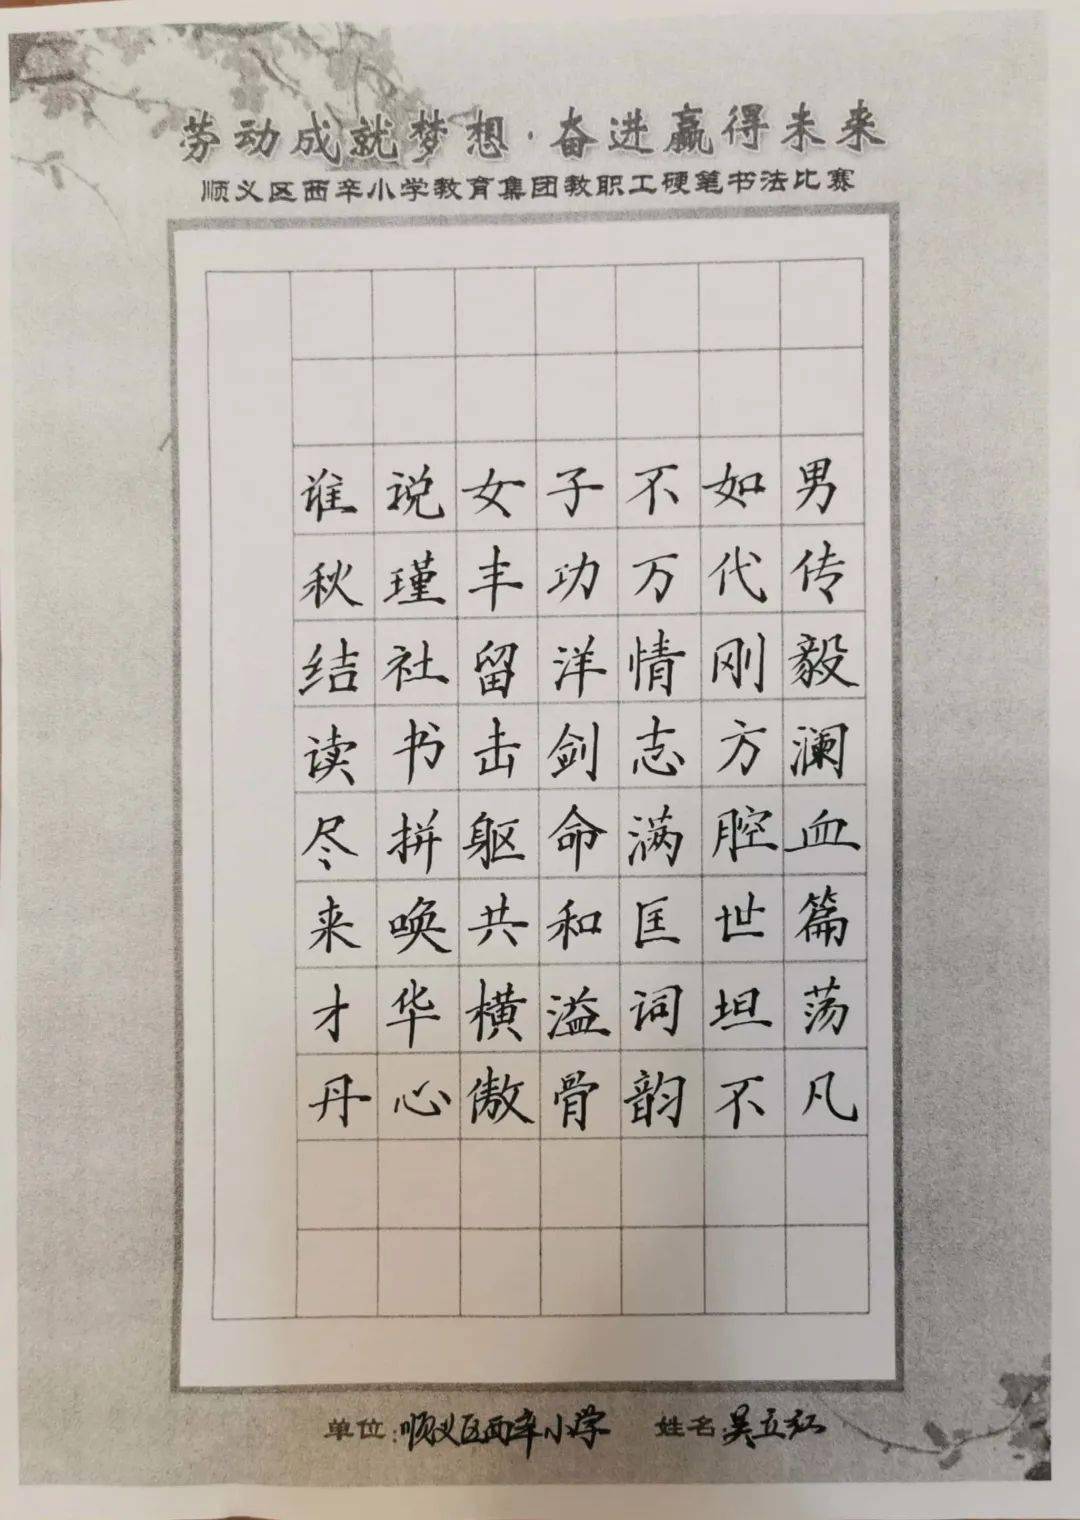 劳动成就梦想·奋进赢得未来
顺义区西辛小学教育集团教职工硬笔书法比赛
谁说女子不如男
秋瑾丰功万代传
结社留洋情刚毅
读书击剑志方澜
尽拼躯命满腔血
来唤共和匡世篇
才华横溢词坦荡
丹心傲骨韵不凡
单位:顺义区西辛小学 姓名:吴立红